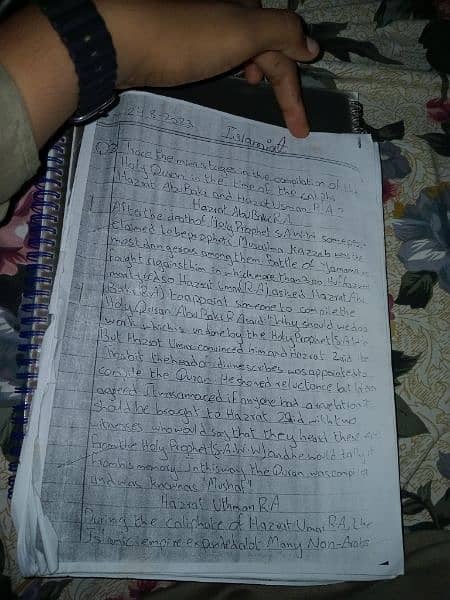 24.8.2023
Islamiat
Q2 Trace the main stages in the compilation of the
Holy Quran in the time of the caliphs
Hazrat Abu Bakr and Hazrat Usman R.A?
Hazrat Abu Bakr R.A
After the death of Holy Prophet S.A.W.W some people
claimed to be prophets Musailma Kazzab was the
most dangerous among them. Battle of Yamama was
fought against him in which more than 300 Huffaz were
Hazrat Umar R.A asked Hazrat Abu
Bakr R.A to appoint someone to compile the
Holy Quran Abu Bakr R.A said "Why should we do a
work which is undone by the Holy Prophet S.A.W.W
But Hazrat Umar convinced him and Hazrat Zaid ibn
Thabit the head of divine scribes was appointed to
compile the Quran. He showed reluctance but than
agreed. It was announced if anyone had a revelation it
should be brought to Hazrat Zaid with two
witnesses who would say that they heard these
from the Holy Prophet S.A.W.W and he would tally it
from his memory. In this way the Quran was compiled
and was known as "Mushaf"
Hazrat Uthman RA
During the caliphate of Hazrat Umar RA, the
Islamic empire expanded alot Many Non-Arabs